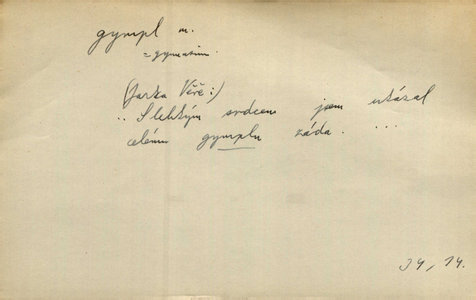 gympl m.
= gymnasium.
(Jarka Věře:)
.. S lehkým srdcem jsem ukázal
celému gymplu záda. ...
34, 14.